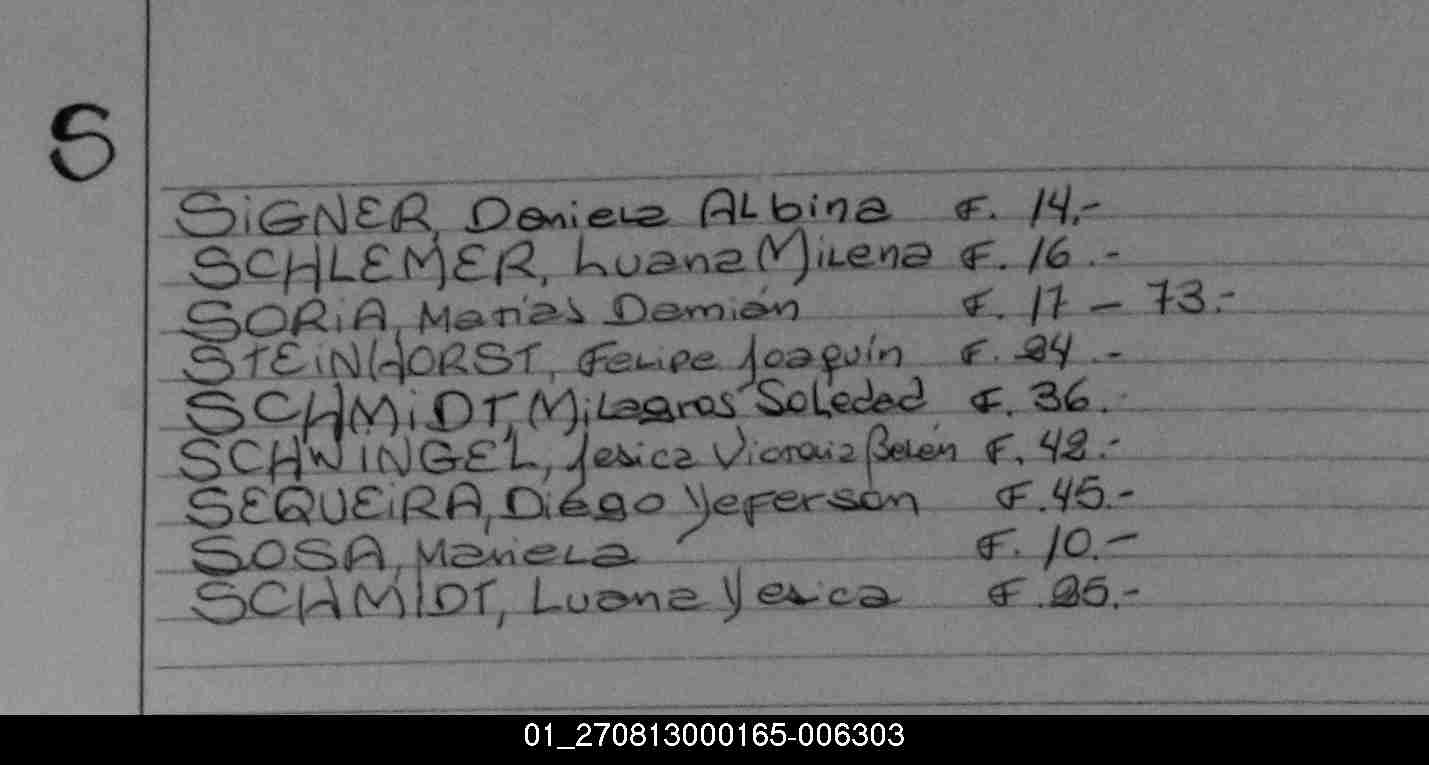 S
SiGNER, Daniela Albina F. 14.-
SCHLEMER, Luana Milena F. 16.-
SORiA, Matías Damián F. 17 - 73.-
STEiNHORST, Felipe Joaquín F. 24.-
SCHMiDT, Milagros Soledad F. 36.-
SCHWINGEL, Jesica Victoria Belén F. 42.-
SEQUEiRA, Diego Yeferson F. 45.-
SOSA, Mariela F. 10.-
SCHMIDT, Luana Yesica F. 25.-
01_270813000165-006303